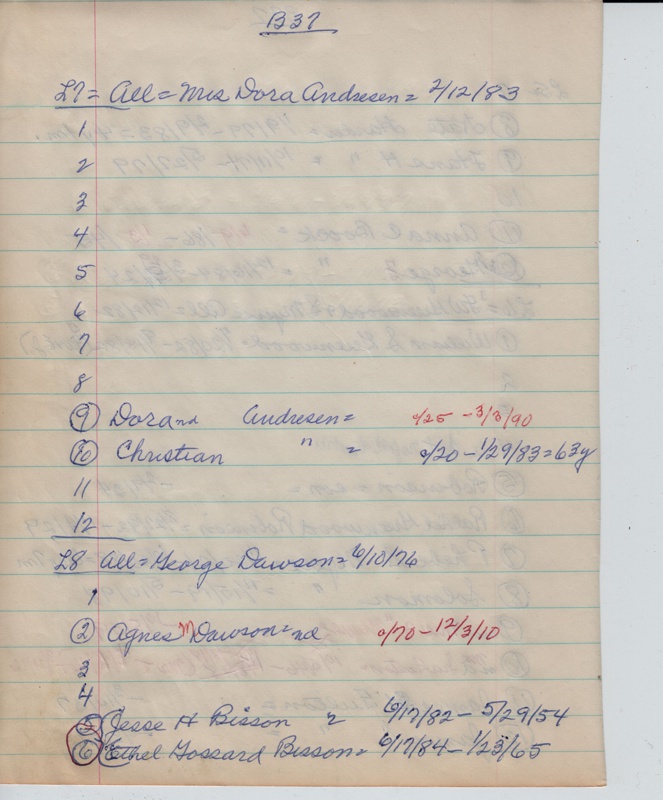 B37
L7 = All = Mrs Dora Andresen = 2/12/83
1
2
3
4
5
6
7
8
9 Dora nd Andresen = 0/25 - 3/3/90
10 Christian " = 0/20 - 1/29/83 = 63y
11
12
L8 = All = George Dawson = 6/10/76
1
2 Agnes M Dawson = nd 0/70 - 12/3/10
3
4
5 Jesse H Bisson 6/17/82 - 5/29/54
6 Ethel Gossard Bisson = 6/17/84 - 1/23/65